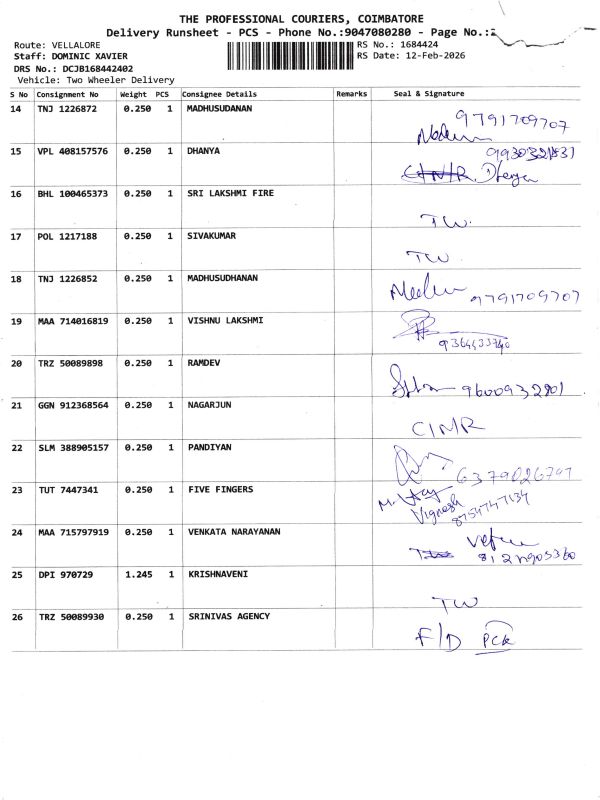 THE PROFESSIONAL COURIERS, COIMBATORE
Delivery Runsheet - PCS - Phone No.:9047080280 - Page No.:
Route: VELLALORE RS No.: 1684424
Staff: DOMINIC XAVIER RS Date: 12-Feb-2026
DRS No.: DCJB168442402
Vehicle: Two Wheeler Delivery
S No Consignment No Weight PCS Consignee Details Remarks Seal & Signature
14 TNJ 1226872 0.250 1 MADHUSUDANAN 9791709707
15 VPL 408157576 0.250 1 DHANYA
16 BHL 100465373 0.250 1 SRI LAKSHMI FIRE TW.
17 POL 1217188 0.250 1 SIVAKUMAR TW
18 TNJ 1226852 0.250 1 MADHUSUDHANAN 9791709707
19 MAA 714016819 0.250 1 VISHNU LAKSHMI
20 TRZ 50089898 0.250 1 RAMDEV
21 GGN 912368564 0.250 1 NAGARJUN C/NR
22 SLM 388905157 0.250 1 PANDIYAN
23 TUT 7447341 0.250 1 FIVE FINGERS Vignesh 8754747134
24 MAA 715797919 0.250 1 VENKATA NARAYANAN
25 DPI 970729 1.245 1 KRISHNAVENI TW
26 TRZ 50089930 0.250 1 SRINIVAS AGENCY F/D